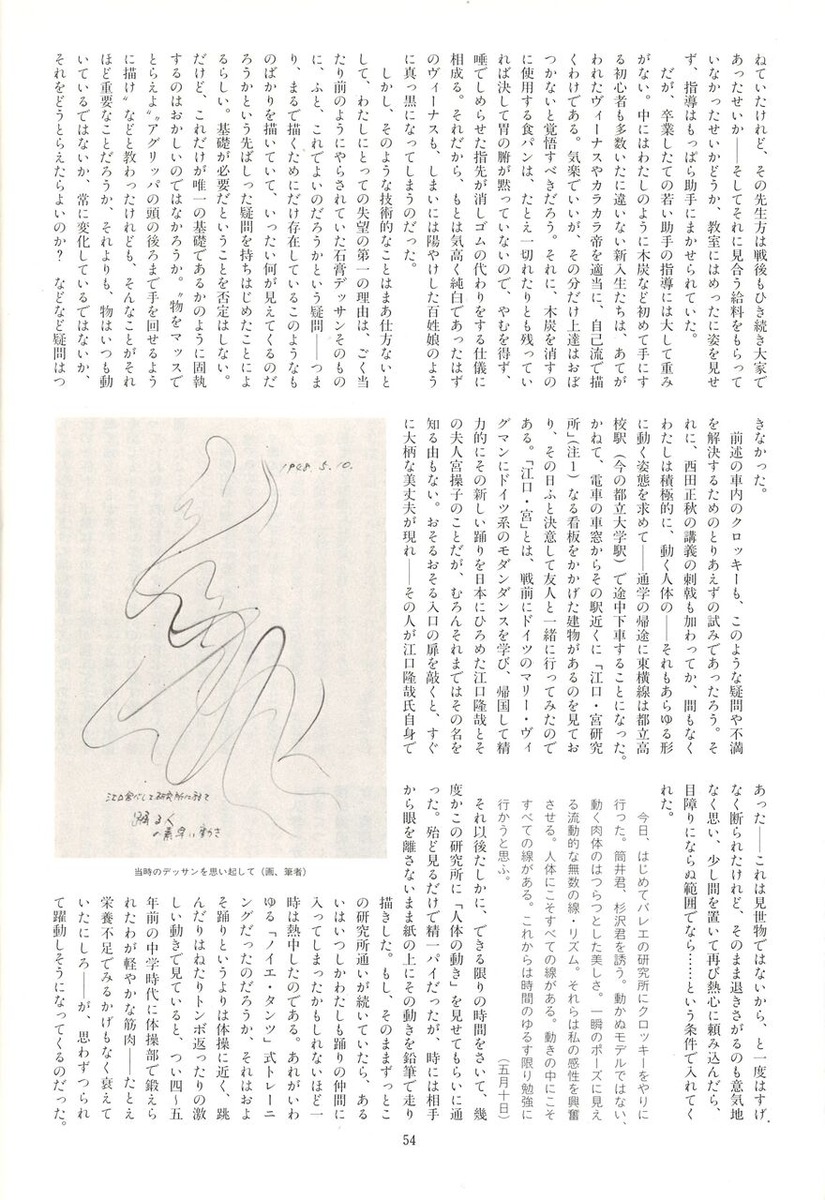 ねていたけれど、その先生方は戦後もひき続き大家で
あったせいか――そしてそれに見合う給料をもらって
いなかったせいかどうか、教室にはめったに姿を見せ
ず、指導はもっぱら助手にまかせられていた。
だが、卒業したての若い助手の指導には大して重み
がない。中にはわたしのように木炭など初めて手にす
る初心者も多数いたに違いない新入生たちは、あてが
われたヴィーナスやカラカラ帝を適当に、自己流で描
くわけである。気楽でいいが、その分だけ上達はおぼ
つかないと覚悟すべきだろう。それに、木炭を消すの
に使用する食パンは、たとえ一切れたりとも残ってい
れば決して胃の腑が黙っていないので、やむを得ず、
唾でしめらせた指先が消しゴムの代わりをする仕儀に
相成る。それだから、もとは気高く純白であったはず
のヴィーナスも、しまいには陽やけした百姓娘のよう
に真っ黒になってしまうのだった。
しかし、そのような技術的なことはまあ仕方ないと
して、わたしにとっての失望の第一の理由は、ごく当
たり前のようにやらされていた石膏デッサンそのもの
に、ふと、これでよいのだろうかという疑問――つま
り、まるで描くためにだけ存在しているこのようなも
のばかりを描いていて、いったい何が見えてくるのだ
ろうかという先ばしった疑問を持ちはじめたことによ
るらしい。基礎が必要だということを否定はしない。
だけど、これだけが唯一の基礎であるかのように固執
するのはおかしいのではなかろうか。〝物をマッスで
とらえよ〟〝アグリッパの頭の後ろまで手を回せるよう
に描け〟などと教わったけれども、そんなことがそれ
ほど重要なことだろうか、それよりも、物はいつも動
いているではないか、常に変化しているではないか、
それをどうとらえたらよいのか?　などなど疑問はつ
きなかった。
前述の車内のクロッキーも、このような疑問や不満
を解決するためのとりあえずの試みであったろう。そ
れに、西田正秋の講義の刺戟も加わってか、間もなく
わたしは積極的に、動く人体の――それもあらゆる形
に動く姿態を求めて――通学の帰途に東横線は都立高
校駅(今の都立大学駅)で途中下車することになった。
かねて、電車の車窓からその駅近くに「江口・宮研究
所」(注1)なる看板をかかげた建物があるのを見てお
り、その日ふと決意して友人と一緒に行ってみたので
ある。「江口・宮」とは、戦前にドイツのマリー・ヴィ
グマンにドイツ系のモダンダンスを学び、帰国して精
力的にその新しい踊りを日本にひろめた江口隆哉とそ
の夫人宮操子のことだが、むろんそれまではその名を
知る由もない。おそるおそる入口の扉を敲くと、すぐ
に大柄な美丈夫が現れ――その人が江口隆哉氏自身で
1948.5.10.
江口宮バレエ研究所に於て
踊る人
の素早い動き
当時のデッサンを思い起して(画、筆者)
あった――これは見世物ではないから、と一度はすげ
なく断られたけれど、そのまま退きさがるのも意気地
なく思い、少し間を置いて再び熱心に頼み込んだら、
目障りにならぬ範囲でなら……という条件で入れてく
れた。
今日、はじめてバレエの研究所にクロッキーをやりに
行った。筒井君、杉沢君を誘う。動かぬモデルではない、
動く肉体のはつらつとした美しさ。一瞬のポーズに見え
る流動的な無数の線・リズム。それらは私の感性を興奮
させる。人体にこそすべての線がある。動きの中にこそ
すべての線がある。これからは時間のゆるす限り勉強に
行かうと思ふ。
(五月十日)
それ以後たしかに、できる限りの時間をさいて、幾
度かこの研究所に「人体の動き」を見せてもらいに通
った。殆ど見るだけで精一パイだったが、時には相手
から眼を離さないまま紙の上にその動きを鉛筆で走り
描きした。もし、そのままずっとこ
の研究所通いが続いていたら、ある
いはいつしかわたしも踊りの仲間に
入ってしまったかもしれないほど一
時は熱中したのである。あれがいわ
ゆる「ノイエ・タンツ」式トレーニ
ングだったのだろうか、それはおよ
そ踊りというよりは体操に近く、跳
んだりはねたりトンボ返ったりの激
しい動きで見ていると、つい四〜五
年前の中学時代に体操部で鍛えら
れたわが軽やかな筋肉――たとえ
栄養不足でみるかげもなく衰えて
いたにしろ――が、思わずつられ
て躍動しそうになってくるのだった。
54